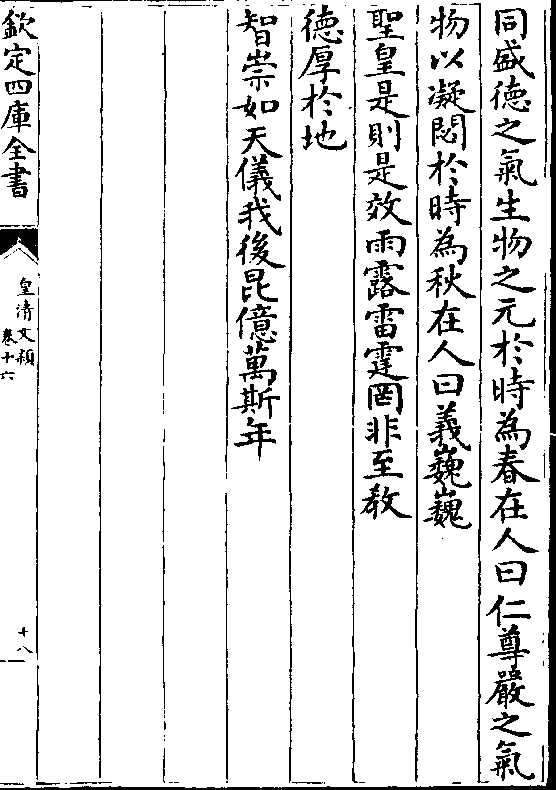 同盛德之氣生物之元於時為春在人曰仁尊嚴之氣
物以凝閟於時為秋在人曰義巍巍
聖皇是則是效雨露雷霆罔非至教
德厚於地
智崇如天儀我後昆億萬斯年
欽定四庫全書
皇清文頴
卷十六
十八